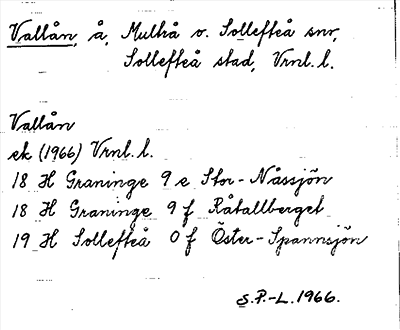 Vallån, å, Multrå o. Sollefteå snr,
Sollefteå stad, Vrnl. l.
Vallån
ek (1966) Vrnl. l.
18 H Graninge 9 e Stor-Nässjön
18 H Graninge 9 f Råtallberget
19 H Sollefteå 0 f Öster-Spannsjön
S.P.-L. 1966.